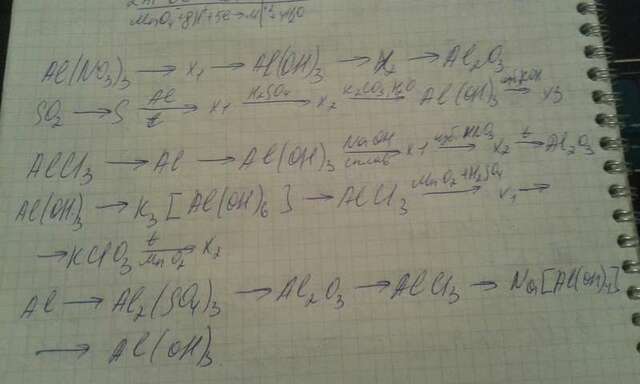 MnO₄ + 8H⁺ + 5e → Mn⁺² + 4H₂O
Al(NO₃)₃ → X₁ → Al(OH)₃ → X₂ → Al₂O₃
SO₂ → S Al t → X₁ H₂SO₄ → X₂ K₂CO₃, H₂O → Al(OH)₃ KOH → X₃
AlCl₃ → Al → Al(OH)₃ NaOH сплав → X₁ изб. HNO₃ → X₂ t → Al₂O₃
Al(OH)₃ → K₃[Al(OH)₆] → AlCl₃ MnO₂ + H₂SO₄ → X₁ →
→ KClO₃ t MnO₂ → X₂
Al → Al₂(SO₄)₃ → Al₂O₃ → AlCl₃ → Na[Al(OH)₄]
→ Al(OH)₃